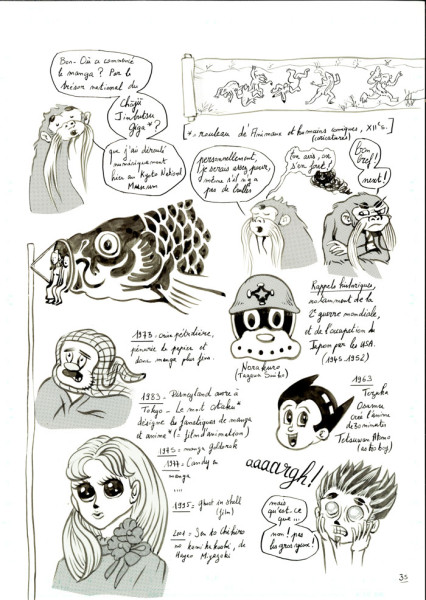 Bon - Où a commencé
le manga ? Par le
trésor national du
Chōjū
Jimbutsu
Giga * ?
que j'ai déroulé
numériquement
hier au Kyoto National
Museum
[* = rouleau de Animaux et humains comiques, XIIe s.
(caricatures)
personnellement,
je serais assez pour,
même s'il n'y a
pas de bulles
Ton avis, on
s'en fout !
bon
bref !
next !
Rappels historiques,
notamment de la
2e guerre mondiale,
et de l'occupation du
Japon par les USA.
(1945-1952)
Norakuro
(Tagawa Suiho)
1973 - crise pétrolière,
pénurie de papier et
donc manga plus fin.
1983 - Disneyland ouvre à
Tokyo - Le mot otaku *
désigne les fanatiques de manga
et anime * (= film d'animation)
1975 = manga Goldorak
1977 = Candy
manga
...
1995 = Ghost in Shell
(film)
2001 = Sen to Chihiro
no kamikakushi, de
Hayao Miyazaki
1963
Tezuka
Osamu
crée l'anime
de 30 minutes
Tetsuwan Atomu
(astroboy)
aaaargh!
mais
qu'est-ce
que...
non ! pas
les gros yeux !
35